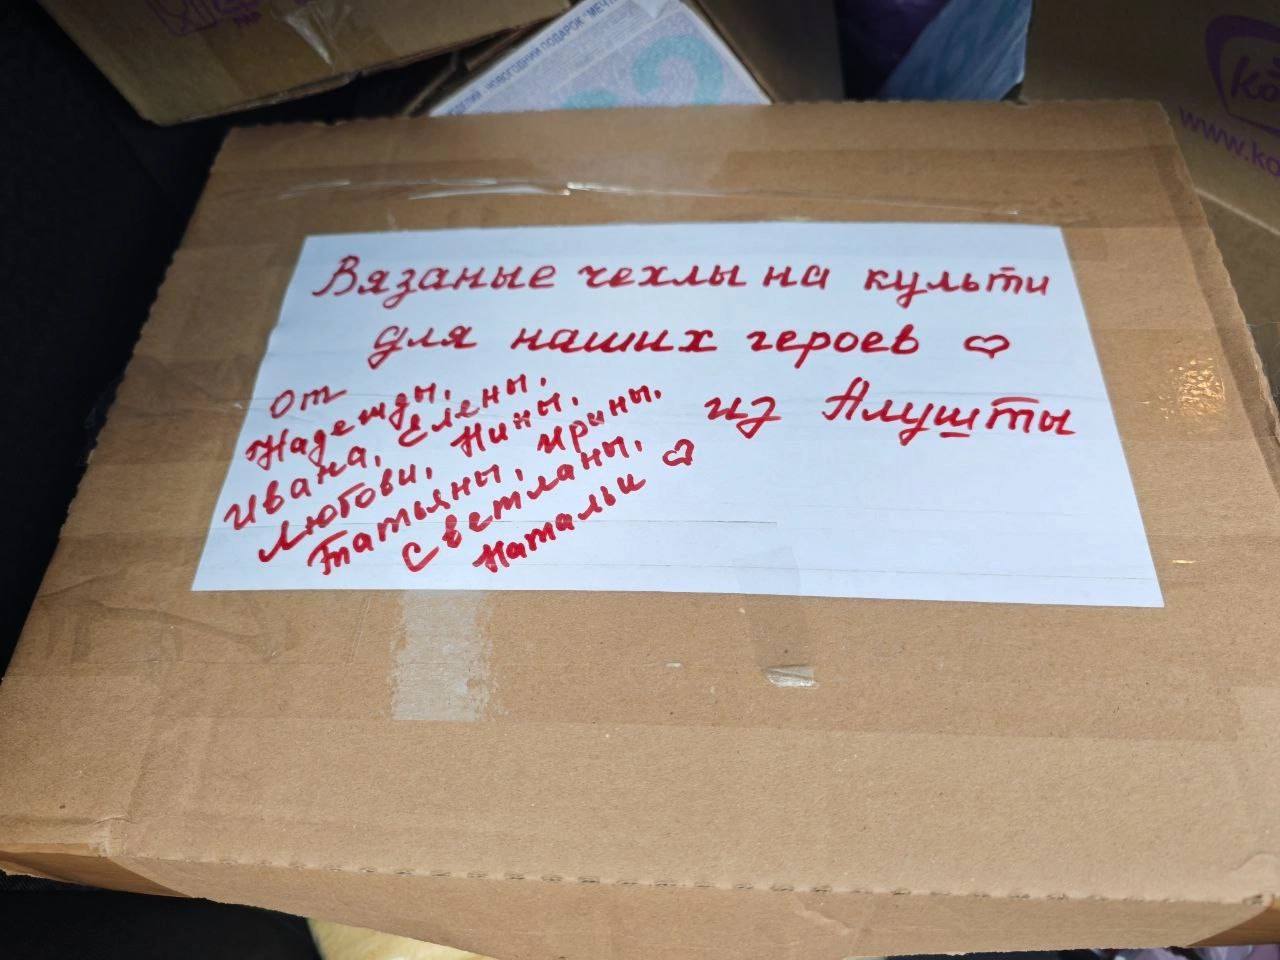 НОВОГОДНИЙ ПОДАРОК
www.ko
Вязаные чехлы на культи
для наших героев
из Алушты
от
Надежды,
Ивана, Елены,
Любови, Нины,
Татьяны, Ирины,
Светланы,
Натальи